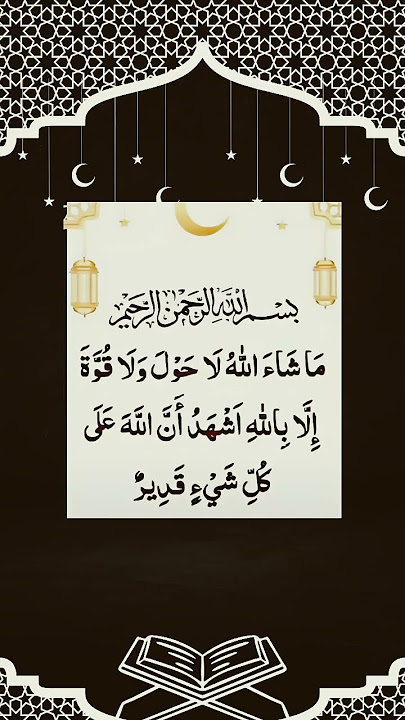 بسم الله الرحمن الرحيم
مَا شَاءَ اللّٰهُ لَا حَوْلَ وَلَا قُوَّةَ
إِلَّا بِاللّٰهِ اَشْهَدُ أَنَّ اللَّهَ عَلَى
كُلِّ شَيْءٍ قَدِيرٌ